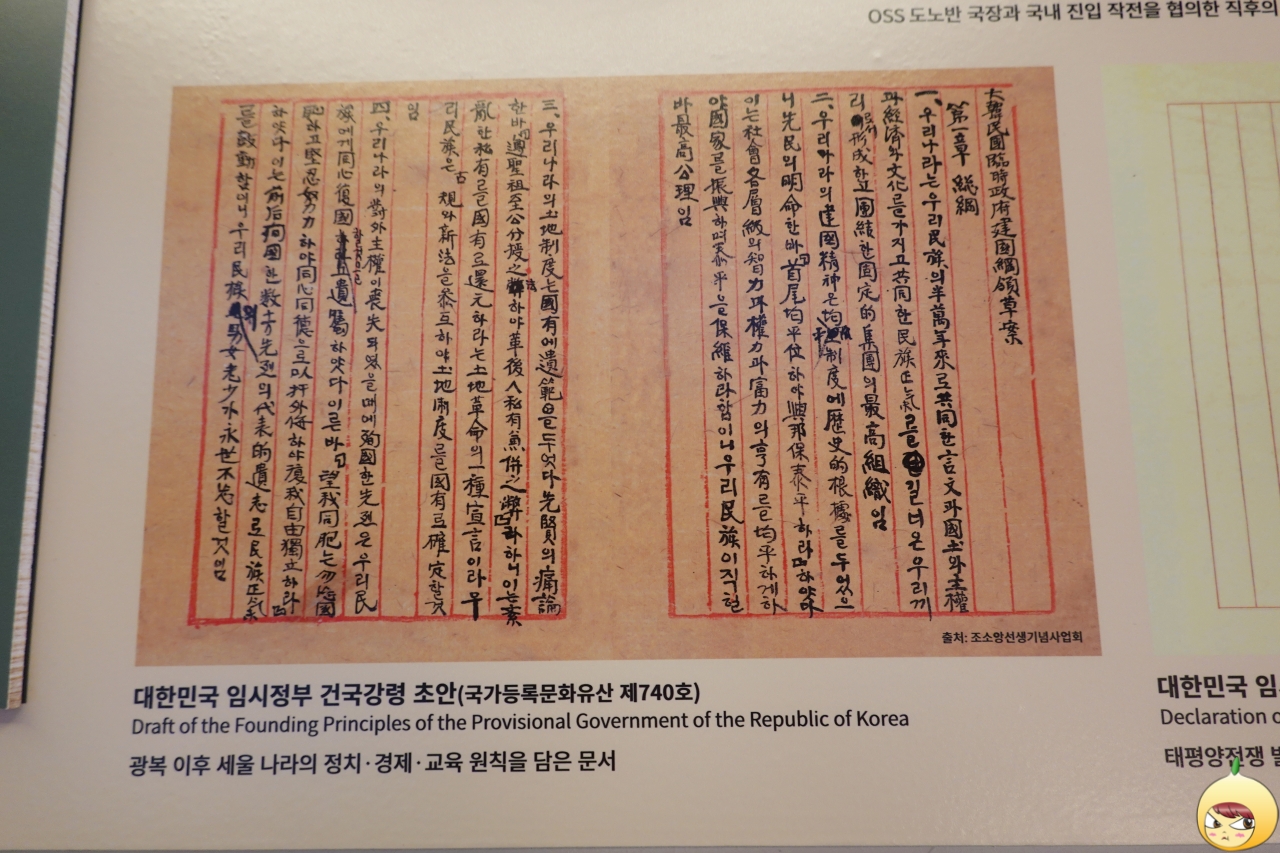 OSS 도노반 국장과 국내 진입 작전을 협의한 직후의
大韓民國臨時政府建國綱領草案
第一章 總綱
一、우리나라는우리民族의半萬年來로共同한言文과國土와主權
과經濟와文化를가지고共同한民族正氣를길너온우리끼
리形成하고團結한固定的集團의最高組織임
二、우리나라의建國精神은 制度에歷史的根據를두었으
니先民의明命한바首尾均平位하야興邦保泰平하라하얏다
이는社會各層級의智力과權力과富力의享有를均平하게하
야國家를振興하며泰平을保維하라함이니우리民族이직힐
바最高公理임
三、우리나라의土地制度는國有에遺範을두엇다先賢의痛論
한바遵聖祖至公分授之法하야革後人私有兼併之弊라하니이는紊
亂한私有를國有로還元하라는土地革命의一種宣言이라우
리民族은古規와新法을參互하야土地制度를國有로確定할것
임
四、우리나라의對外主權이喪失되엿을때에殉國한先烈은우리民
族에게同心復國할것을遺囑하얏다이른바望我同胞는勿忘國
恥하고堅忍努力하야同心同德으로以扞外侮하야復我自由獨立하라
하엿다이는前后殉國한數十万先烈의代表的遺志로民族正氣
를鼓動함이니우리民族의男女老少가永世不忘할것임
출처: 조소앙선생기념사업회
대한민국 임시정부 건국강령 초안(국가등록문화유산 제740호)
Draft of the Founding Principles of the Provisional Government of the Republic of Korea
광복 이후 세울 나라의 정치·경제·교육 원칙을 담은 문서
대한민국 임
Declaration
태평양전쟁